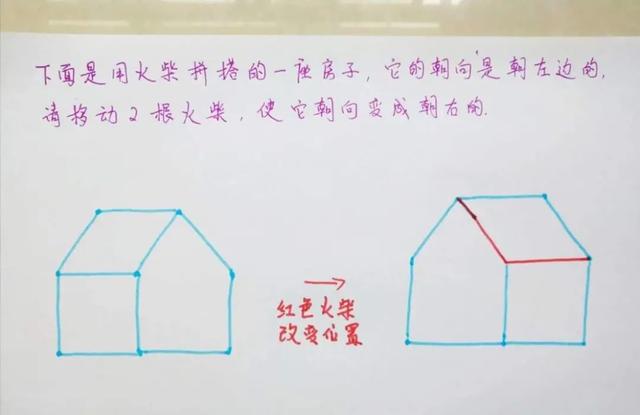 下面是用火柴拼搭的一座房子，它的朝向是朝左边的，
请移动2根火柴，使它朝向变成朝右的.
红色火柴
改变位置